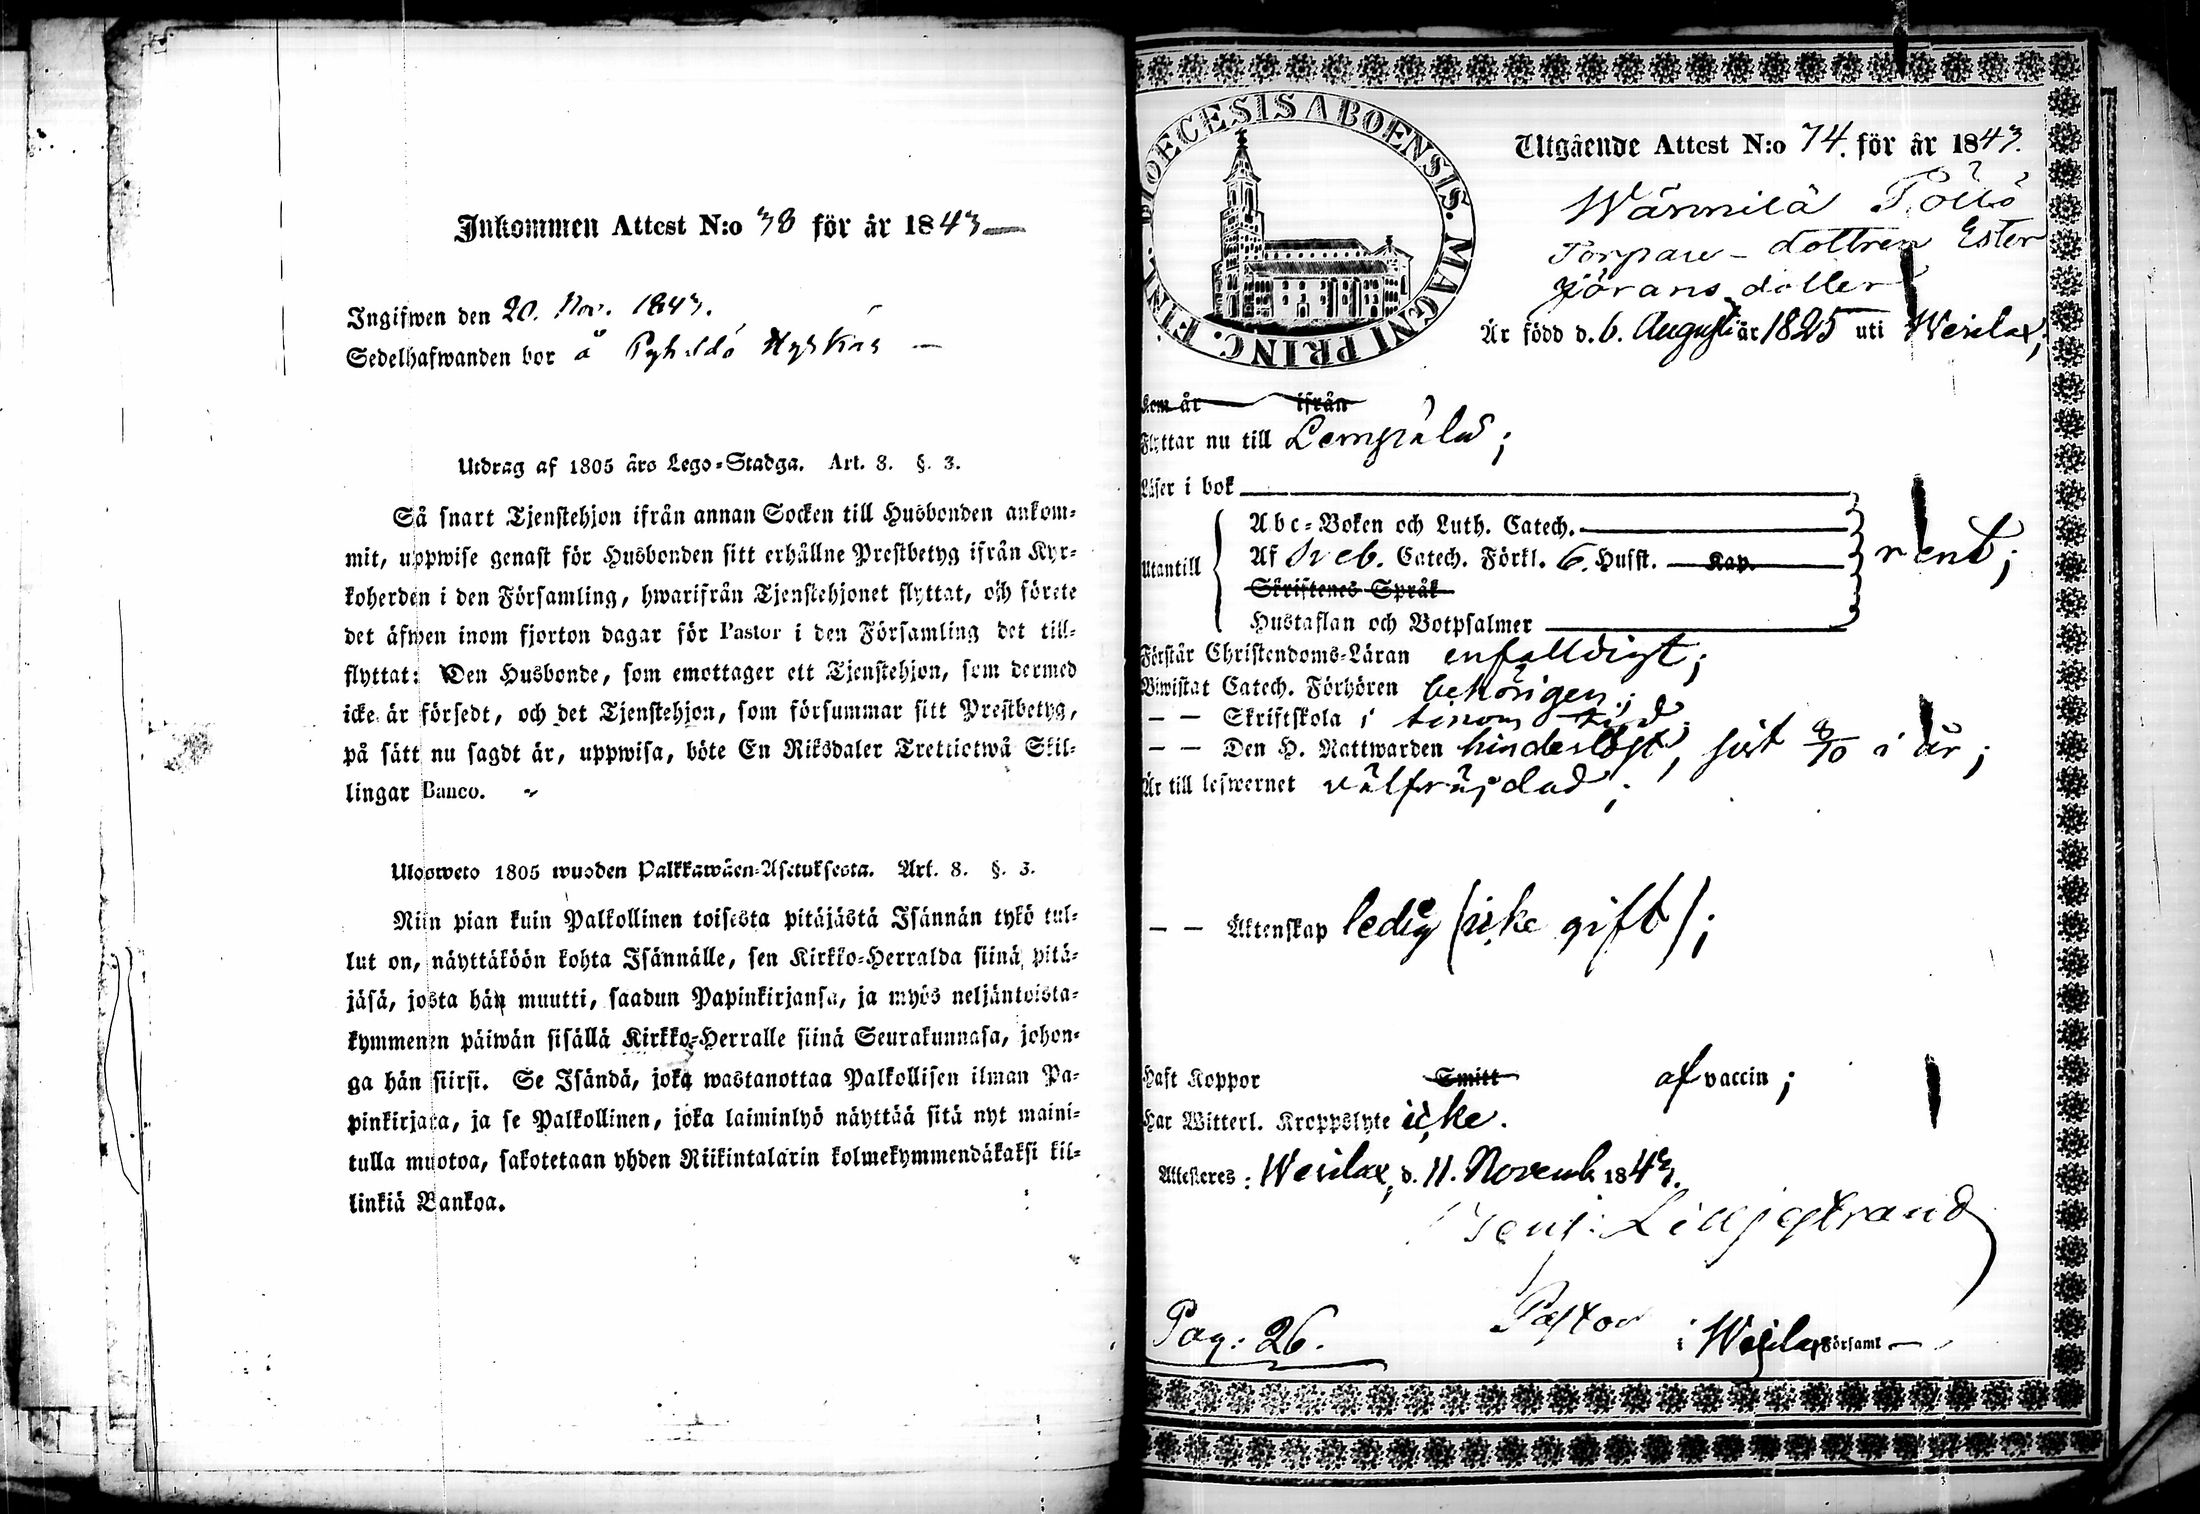 Inkommen Attest N:o 38 för år 1843
Ingifwen den 20. Nov. 1843.
Sedelhafwanden bor å Pyhäldö Hyrkäs
Utdrag af 1805 års Lego-Stadga. Art. 8. §. 3.
Så snart Tjenstehjon ifrån annan Socken till Husbonden ankom-
mit, uppwise genast för Husbonden sitt erhållne Prestbetyg ifrån Kyr-
koherden i den Församling, hwarifrån Tjenstehjonet flyttat, och förete
det äfwen inom fjorton dagar för Pastor i den Församling det till-
flyttat: Den Husbonde, som emottager ett Tjenstehjon, som dermed
icke är försedt, och det Tjenstehjon, som försummar sitt Prestbetyg,
på sätt nu sagdt är, uppwisa, böte En Riksdaler Trettiotwå Skil-
lingar Banco.
Ulosweto 1805 wuoden Palkkawäen-Asetuksesta. Art. 8. §. 3.
Niin pian kuin Palkollinen toisesta pitäjästä Isännän tykö tul-
lut on, näyttäköön kohta Isännälle, sen Kirkko-Herralda siinä pitä-
jäsä, josta hän muutti, saadun Papinkirjansa, ja myös neljäntoista-
kymmenen päiwän sisällä Kirkko-Herralle siinä Seurakunnasa, johon-
ga hän siirsi. Se Isändä, joka wastanottaa Palkollisen ilman Pa-
pinkirjata, ja se Palkollinen, joka laiminlyö näyttää sitä nyt maini-
tulla muotoa, sakotetaan yhden Riikintalarin kolmekymmendäkaksi kil-
linkiä Bankoa.
DIOECESIS ABOENSIS. MAGNI PRINC. FINL.
Utgående Attest N:o 74. för år 1843.
Wärmilä Pöllö
Torpare-dottren Ester
Jörans dotter
Är född d. 6. Augusti år 1825 uti Wesilax;
Kom år ifrån
Flyttar nu till Lempälä;
Läser i bok
Abc-Boken och Luth. Catech.
Utantill Af Sveb. Catech. Förkl. 6. Husst. Kap. rent;
Skriftenes Språk
Hustaflan och Botpsalmer
Förstår Christendoms-Läran enfalldigt;
Biwistat Catech. Förhören behörigen;
— — Skriftskola i sinom tid;
— — Den H. Nattwarden hinderlöst, sist 8/10 i år;
Är till lefwernet välfräjdad;
— — Äktenskap ledig (icke gift);
Haft Koppor Smitt af vaccin;
Har Witterl. Kroppslyte icke.
Attesteres: Wesilax, d. 11. Novemb. 1843.
Benj: Liljestrand
Pastor
Pag: 26.
i Wesilax Församl